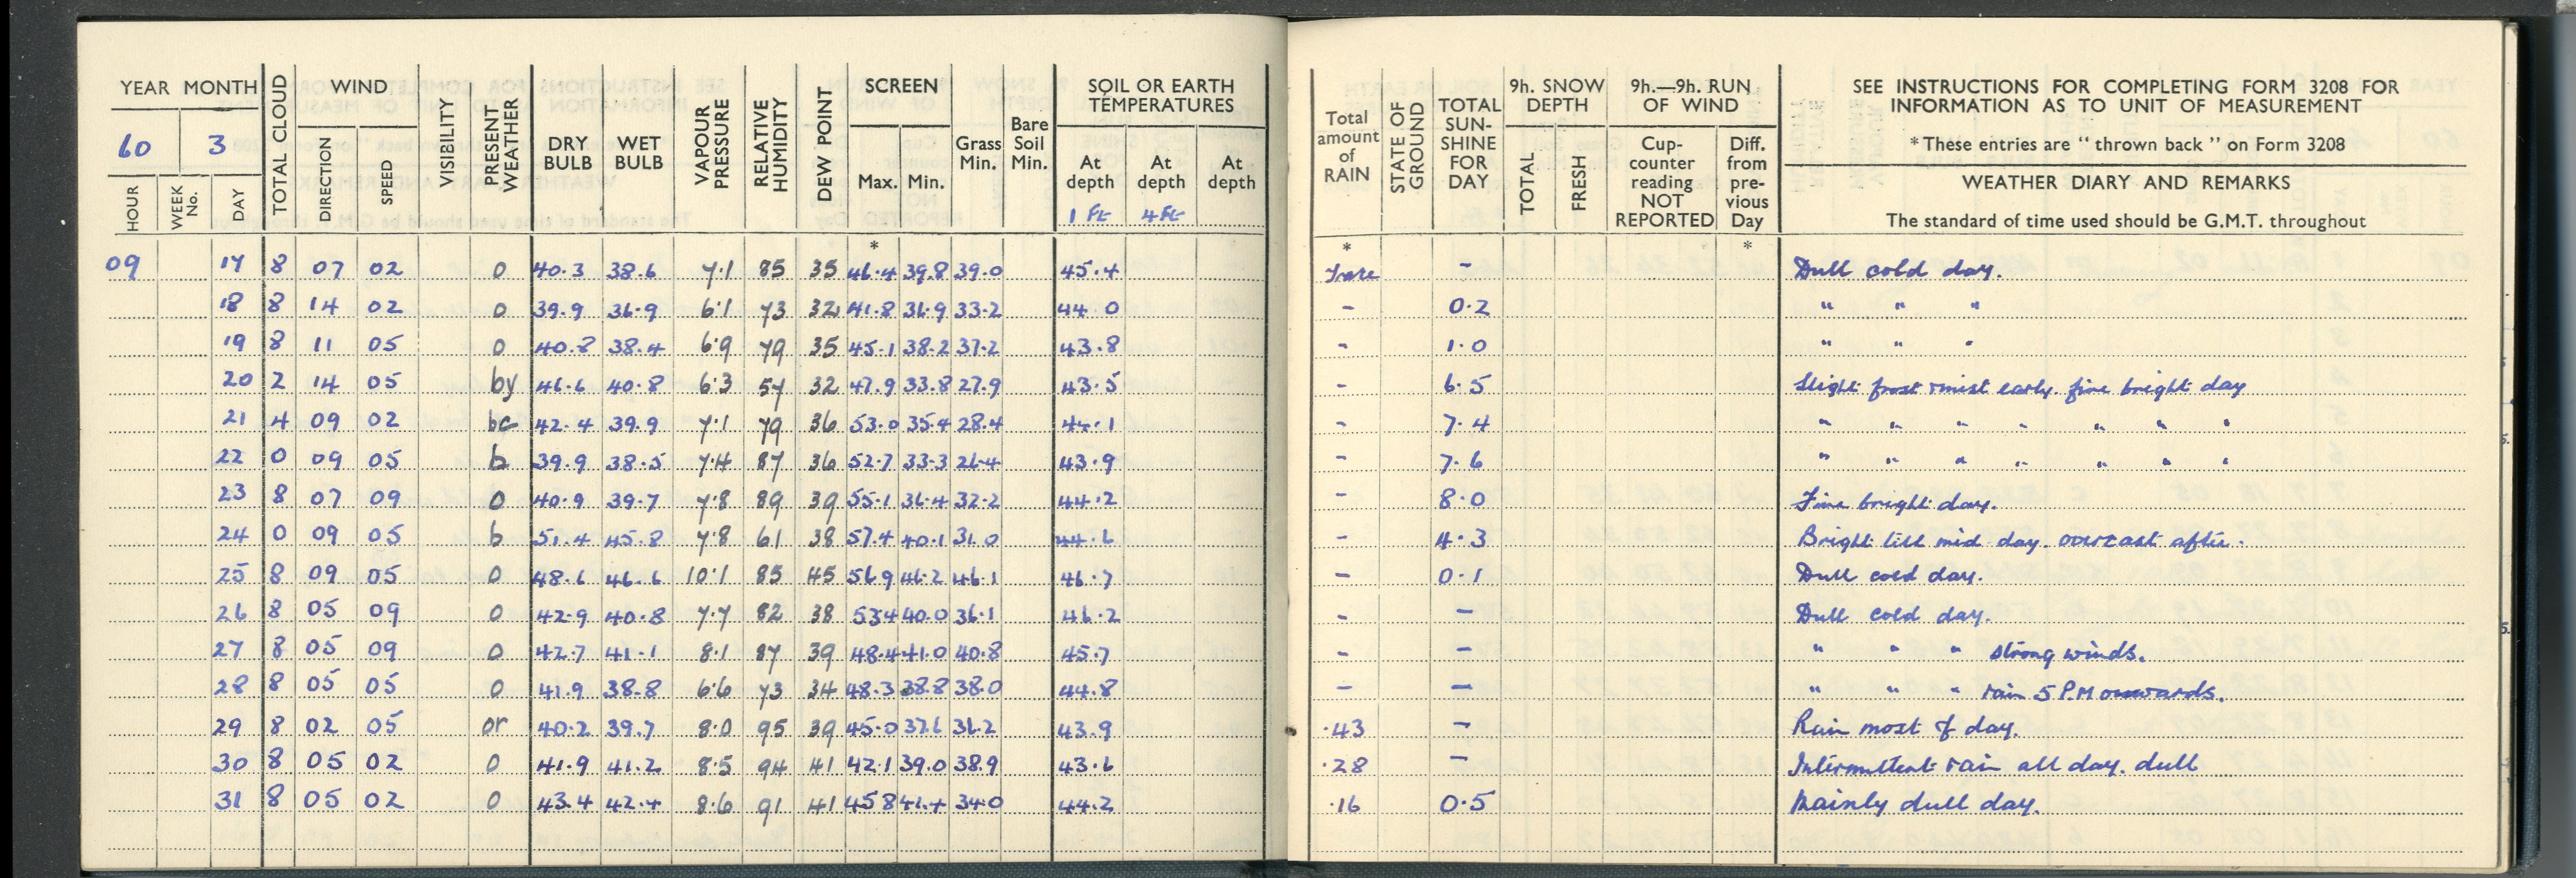 YEAR MONTH TOTAL CLOUD WIND VISIBILITY PRESENT WEATHER DRY BULB WET BULB VAPOUR PRESSURE RELATIVE HUMIDITY DEW POINT SCREEN Grass Min. Bare Soil Min. SOIL OR EARTH TEMPERATURES
60 3 DIRECTION SPEED Max. Min. At depth At depth At depth
HOUR WEEK No. DAY 1 Ft 4 Ft
Total amount of RAIN STATE OF GROUND TOTAL SUN-SHINE FOR DAY 9h. SNOW DEPTH 9h.—9h. RUN OF WIND
TOTAL FRESH Cup-counter reading NOT REPORTED Diff. from pre-vious Day
SEE INSTRUCTIONS FOR COMPLETING FORM 3208 FOR
INFORMATION AS TO UNIT OF MEASUREMENT
* These entries are "thrown back" on Form 3208
WEATHER DIARY AND REMARKS
The standard of time used should be G.M.T. throughout
* * *
09 17 8 07 02 0 40.3 38.6 7.1 85 35 46.4 39.8 39.0 45.4 Trace - Dull cold day.
18 8 14 02 0 39.9 36.9 6.1 73 32 41.8 36.9 33.2 44 0 - 0.2 " " "
19 8 11 05 0 40.8 38.4 6.9 79 35 45.1 38.2 37.2 43.8 - 1.0 " " "
20 2 14 05 by 46.6 40.8 6.3 57 32 47.9 33.8 27.9 43.5 - 6.5 Slight frost & mist early. fine bright day
21 4 09 02 bc 42.4 39.9 7.1 79 36 53.0 35.4 28.4 44.1 - 7.4 " " " " " " "
22 0 09 05 b 39.9 38.5 7.4 87 36 52.7 33.3 26.4 43.9 - 7.6 " " " " " " "
23 8 07 09 0 40.9 39.7 7.8 89 39 55.1 36.4 32.2 44.2 - 8.0 Fine bright day.
24 0 09 05 b 51.4 45.8 7.8 61 38 57.4 40.1 31.0 44.6 - 4.3 Bright till mid day. overcast after.
25 8 09 05 0 48.6 46.6 10.1 85 45 56.9 46.2 46.1 46.7 - 0.1 Dull cold day.
26 8 05 09 0 42.9 40.8 7.7 82 38 53.4 40.0 36.1 46.2 - - Dull cold day.
27 8 05 09 0 42.7 41.1 8.1 87 39 48.4 41.0 40.8 45.7 - - " " " strong winds.
28 8 05 05 0 41.9 38.8 6.6 73 34 48.3 38.8 38.0 44.8 - - " " " rain 5 P.M onwards.
29 8 02 05 or 40.2 39.7 8.0 95 39 45.0 37.6 36.2 43.9 .43 - Rain most of day.
30 8 05 02 0 41.9 41.2 8.5 94 41 42.1 39.0 38.9 43.6 .28 - Intermittent rain all day. dull
31 8 05 02 0 43.4 42.4 8.6 91 41 45 8 41.4 34.0 44.2 .16 0.5 Mainly dull day.